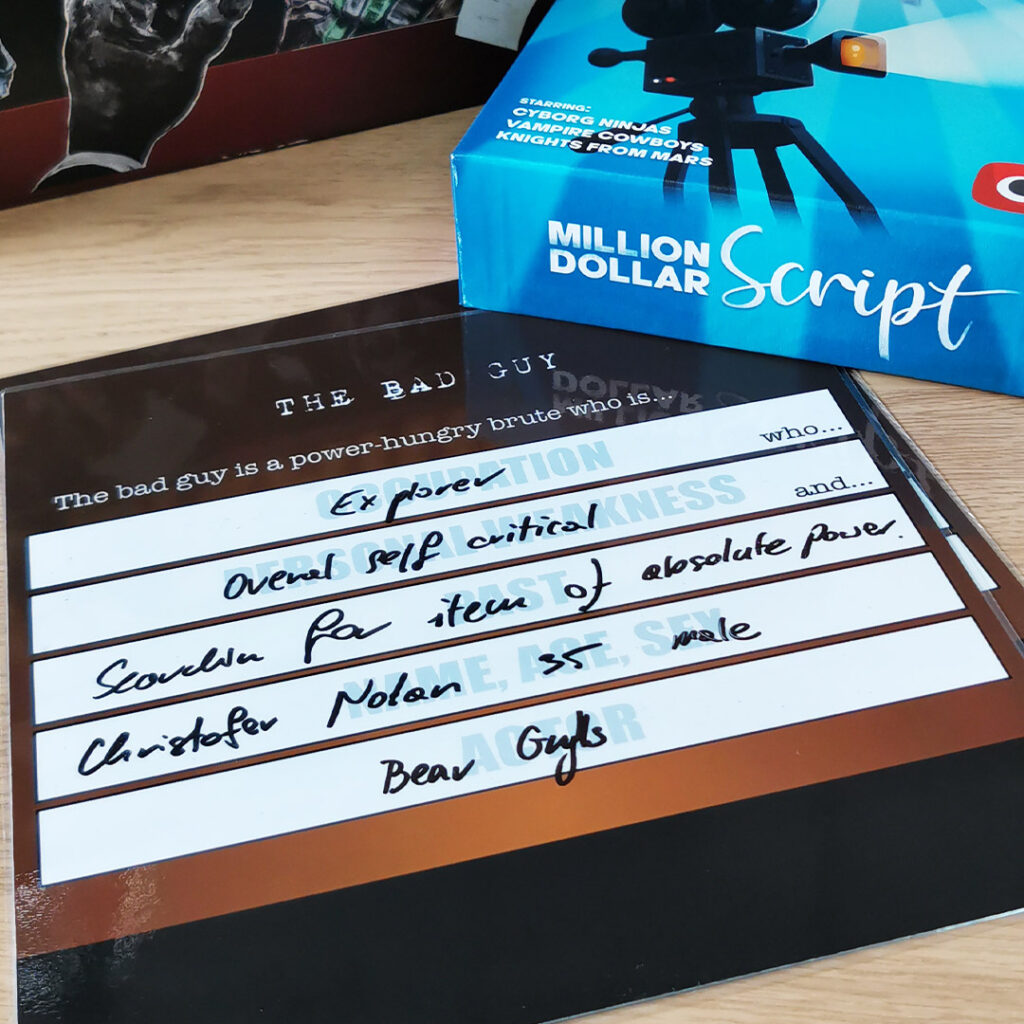 STARRING:
CYBORG NINJAS
VAMPIRE COWBOYS
KNIGHTS FROM MARS
MILLION
DOLLAR
Script
THE BAD GUY
The bad guy is a power-hungry brute who is...
OCCUPATION
Explorer
who...
PERSONAL WEAKNESS
Overal self critical
and...
PAST
for item of absolute power.
NAME, AGE, SEX
Christofer Nolan 35 male
ACTOR
Bear Grylls